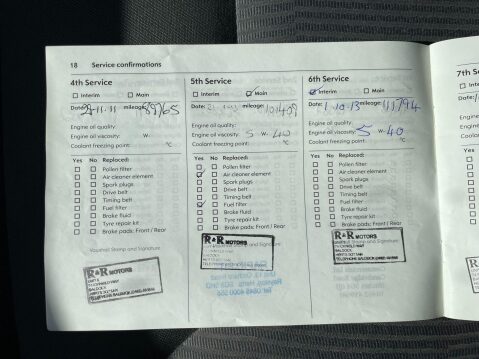 18 Service confirmations
4th Service
Interim Main
Date: 29.11.11 mileage: 89765
Engine oil quality:
Engine oil viscosity: W-
Coolant freezing point: °C
Yes No Replaced:
Pollen filter
Air cleaner element
Spark plugs
Drive belt
Timing belt
Fuel filter
Brake fluid
Tyre repair kit
Brake pads: Front / Rear
Vauxhall Stamp and Signature
R&R MOTORS
BALDOCK
5th Service
Interim Main
Date: mileage: 101409
Engine oil quality:
Engine oil viscosity: 5 W- 40
Coolant freezing point: °C
Yes No Replaced:
Pollen filter
Air cleaner element
Spark plugs
Drive belt
Timing belt
Fuel filter
Brake fluid
Tyre repair kit
Brake pads: Front / Rear
Stamp and Signature
R&R MOTORS
6th Service
Interim Main
Date: 1.10.13 mileage: 111794
Engine oil quality:
Engine oil viscosity: 5 W- 40
Coolant freezing point: °C
Yes No Replaced:
Pollen filter
Air cleaner element
Spark plugs
Drive belt
Timing belt
Fuel filter
Brake fluid
Tyre repair kit
Brake pads: Front / Rear
Stamp and Signature
R&R MOTORS
7th Se
Interim
Date:
Engine
Engine
Coolant
Yes